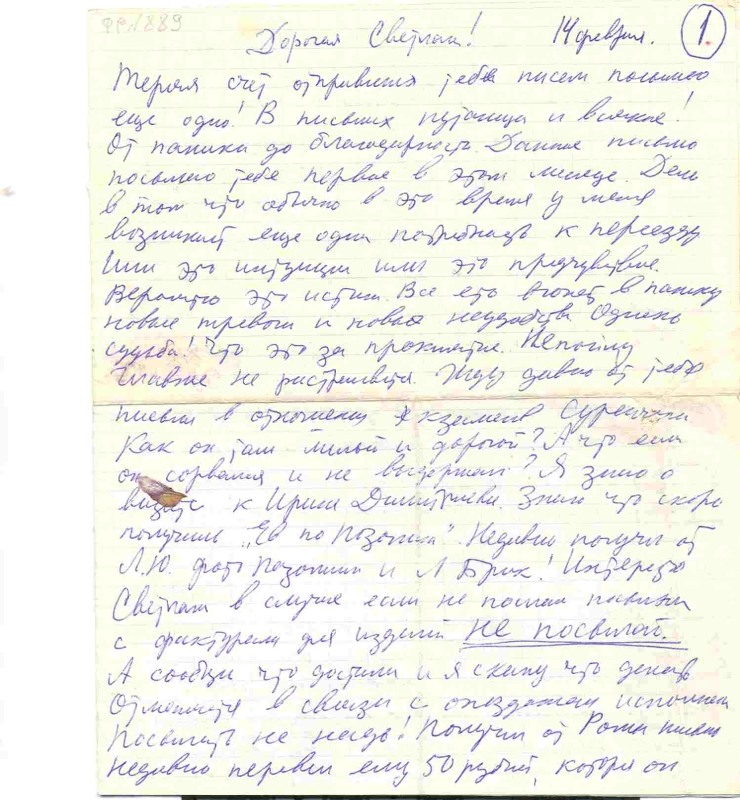 ФР1889
Дорогая Светлана! 14 февраля. 1.
Теряя счет отправления тебе писем посылаю
еще одно! В письмах путаница и всякое!
От паники до благодарности. Данное письмо
посылаю тебе первое в этом месяце. Дело
в том что обычно в это время у меня
возникает еще одна потребность к переезду
Или это интуиция или это предчувствие.
Вероятно это истина. Все его вгонят в панику
новые тревоги и новые неудобства Однако
судьба! Что это за проклятие. Не пойму
Главное не растеряться. Жду давно от тебя
письма в отношении экзаменов Суренчика
Как он там милый и дорогой? А что если
он сорвался и не выдержал? Я знаю о
визите к Ирине Дмитриевне. Знаю что скоро
получишь „ Недавно получил от
Л.Ю. фото и Л Брик! Интересно
Светлана в случае если не послала посылки
с фактурами для изделий не посылай.
А сообщи что достала и я скажу что делать
Отменяется в связи с опозданием исполнения
Посылать не надо! Получил от Ромы письмо
Недавно перевел ему 50 рублей, которые он